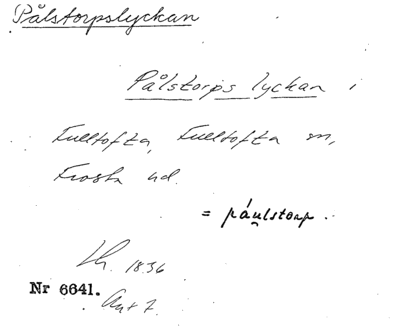 Pålstorpslyckan
Pålstorps lyckan i
Fulltofta, Fulltofta sn,
Frosta hd.
= páulstorp.
Lh. 1836
Nr 6641.